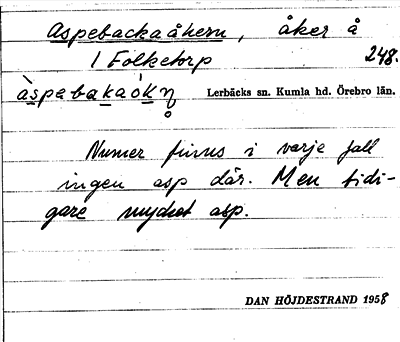 Aspebackaåkern, åker å
1 Folketorp 248.
àspebakaók Lerbäcks sn. Kumla hd. Örebro län.
Numer finns i varje fall
ingen asp där. Men tidi-
gare mycket asp.
DAN HÖJDESTRAND 1958